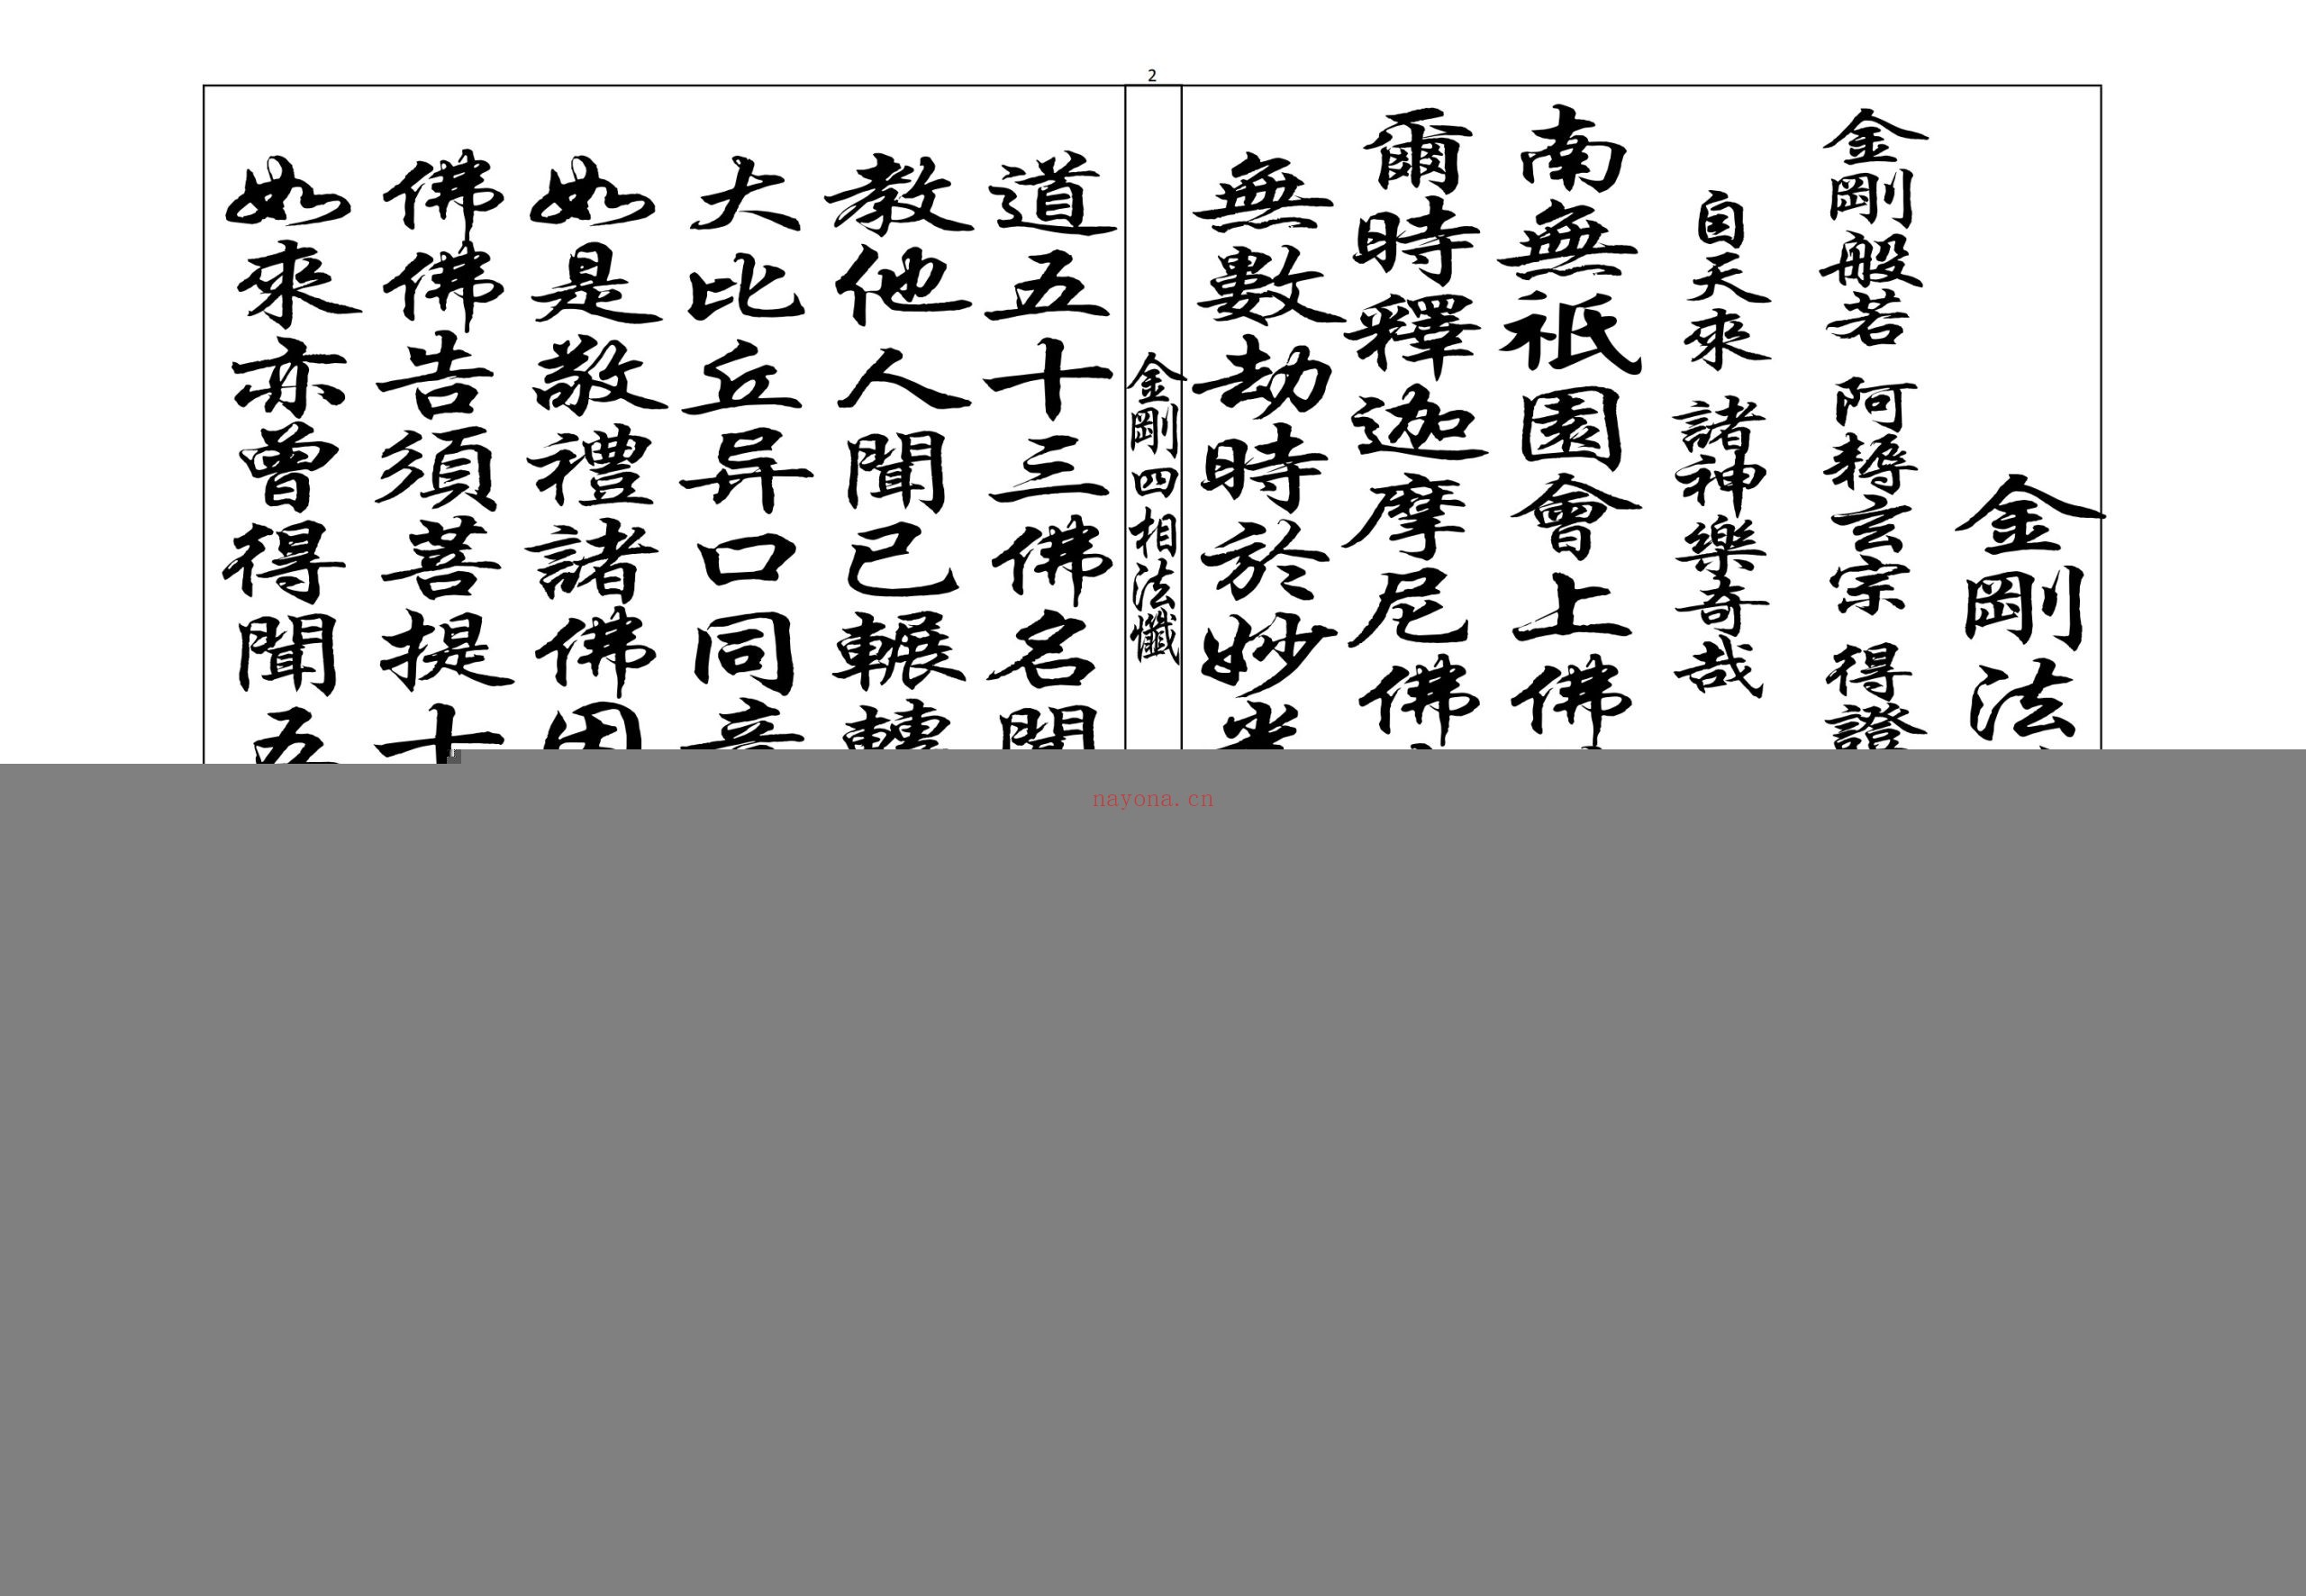 2
金剛法
金剛般若 阿耨云字 得證
自天來 諸神樂奇哉
南無祇園會上佛
爾時釋迦牟尼佛
無數劫時於妙
金剛四相法懺
道五十三佛名聞
教他人聞已輾轉
大地立異口同音
如異敬禮諸佛因
佛佛告須菩提十
如來亦曾得聞五
nayona.cn